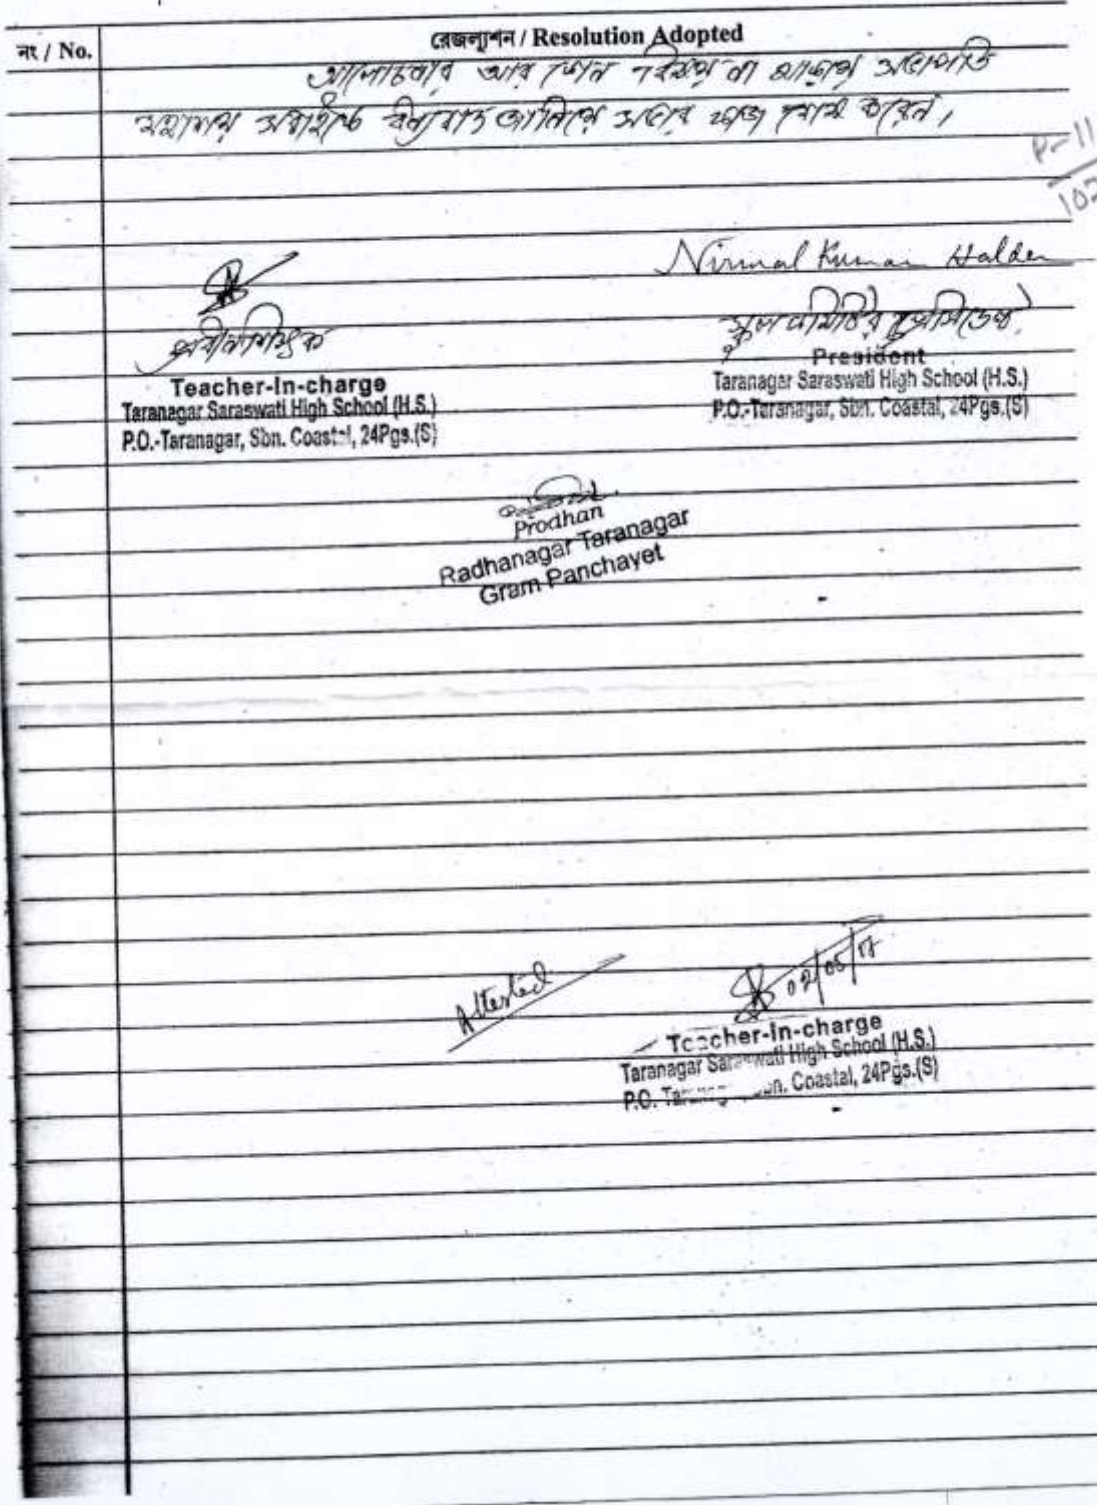 নং / No.
রেজল্যুশন / Resolution Adopted
আলোচনার আর কোন বিষয় না থাকায় সভাপতি
মহাশয় সবাইকে ধন্যবাদ জানিয়ে সভার কাজ শেষ করেন।
P-11
102
Nirmal Kumar Halder
প্রধান শিক্ষক
স্কুল কমিটির প্রেসিডেন্ট
Teacher-In-charge
Taranagar Saraswati High School (H.S.)
P.O.-Taranagar, Sbn. Coastal, 24Pgs.(S)
President
Taranagar Saraswati High School (H.S.)
P.O.-Taranagar, Sbn. Coastal, 24Pgs.(S)
Prodhan
Radhanagar Taranagar
Gram Panchayet
Attested
02/05/17
Teacher-In-charge
Taranagar Saraswati High School (H.S.)
P.O. Coastal, 24Pgs.(S)